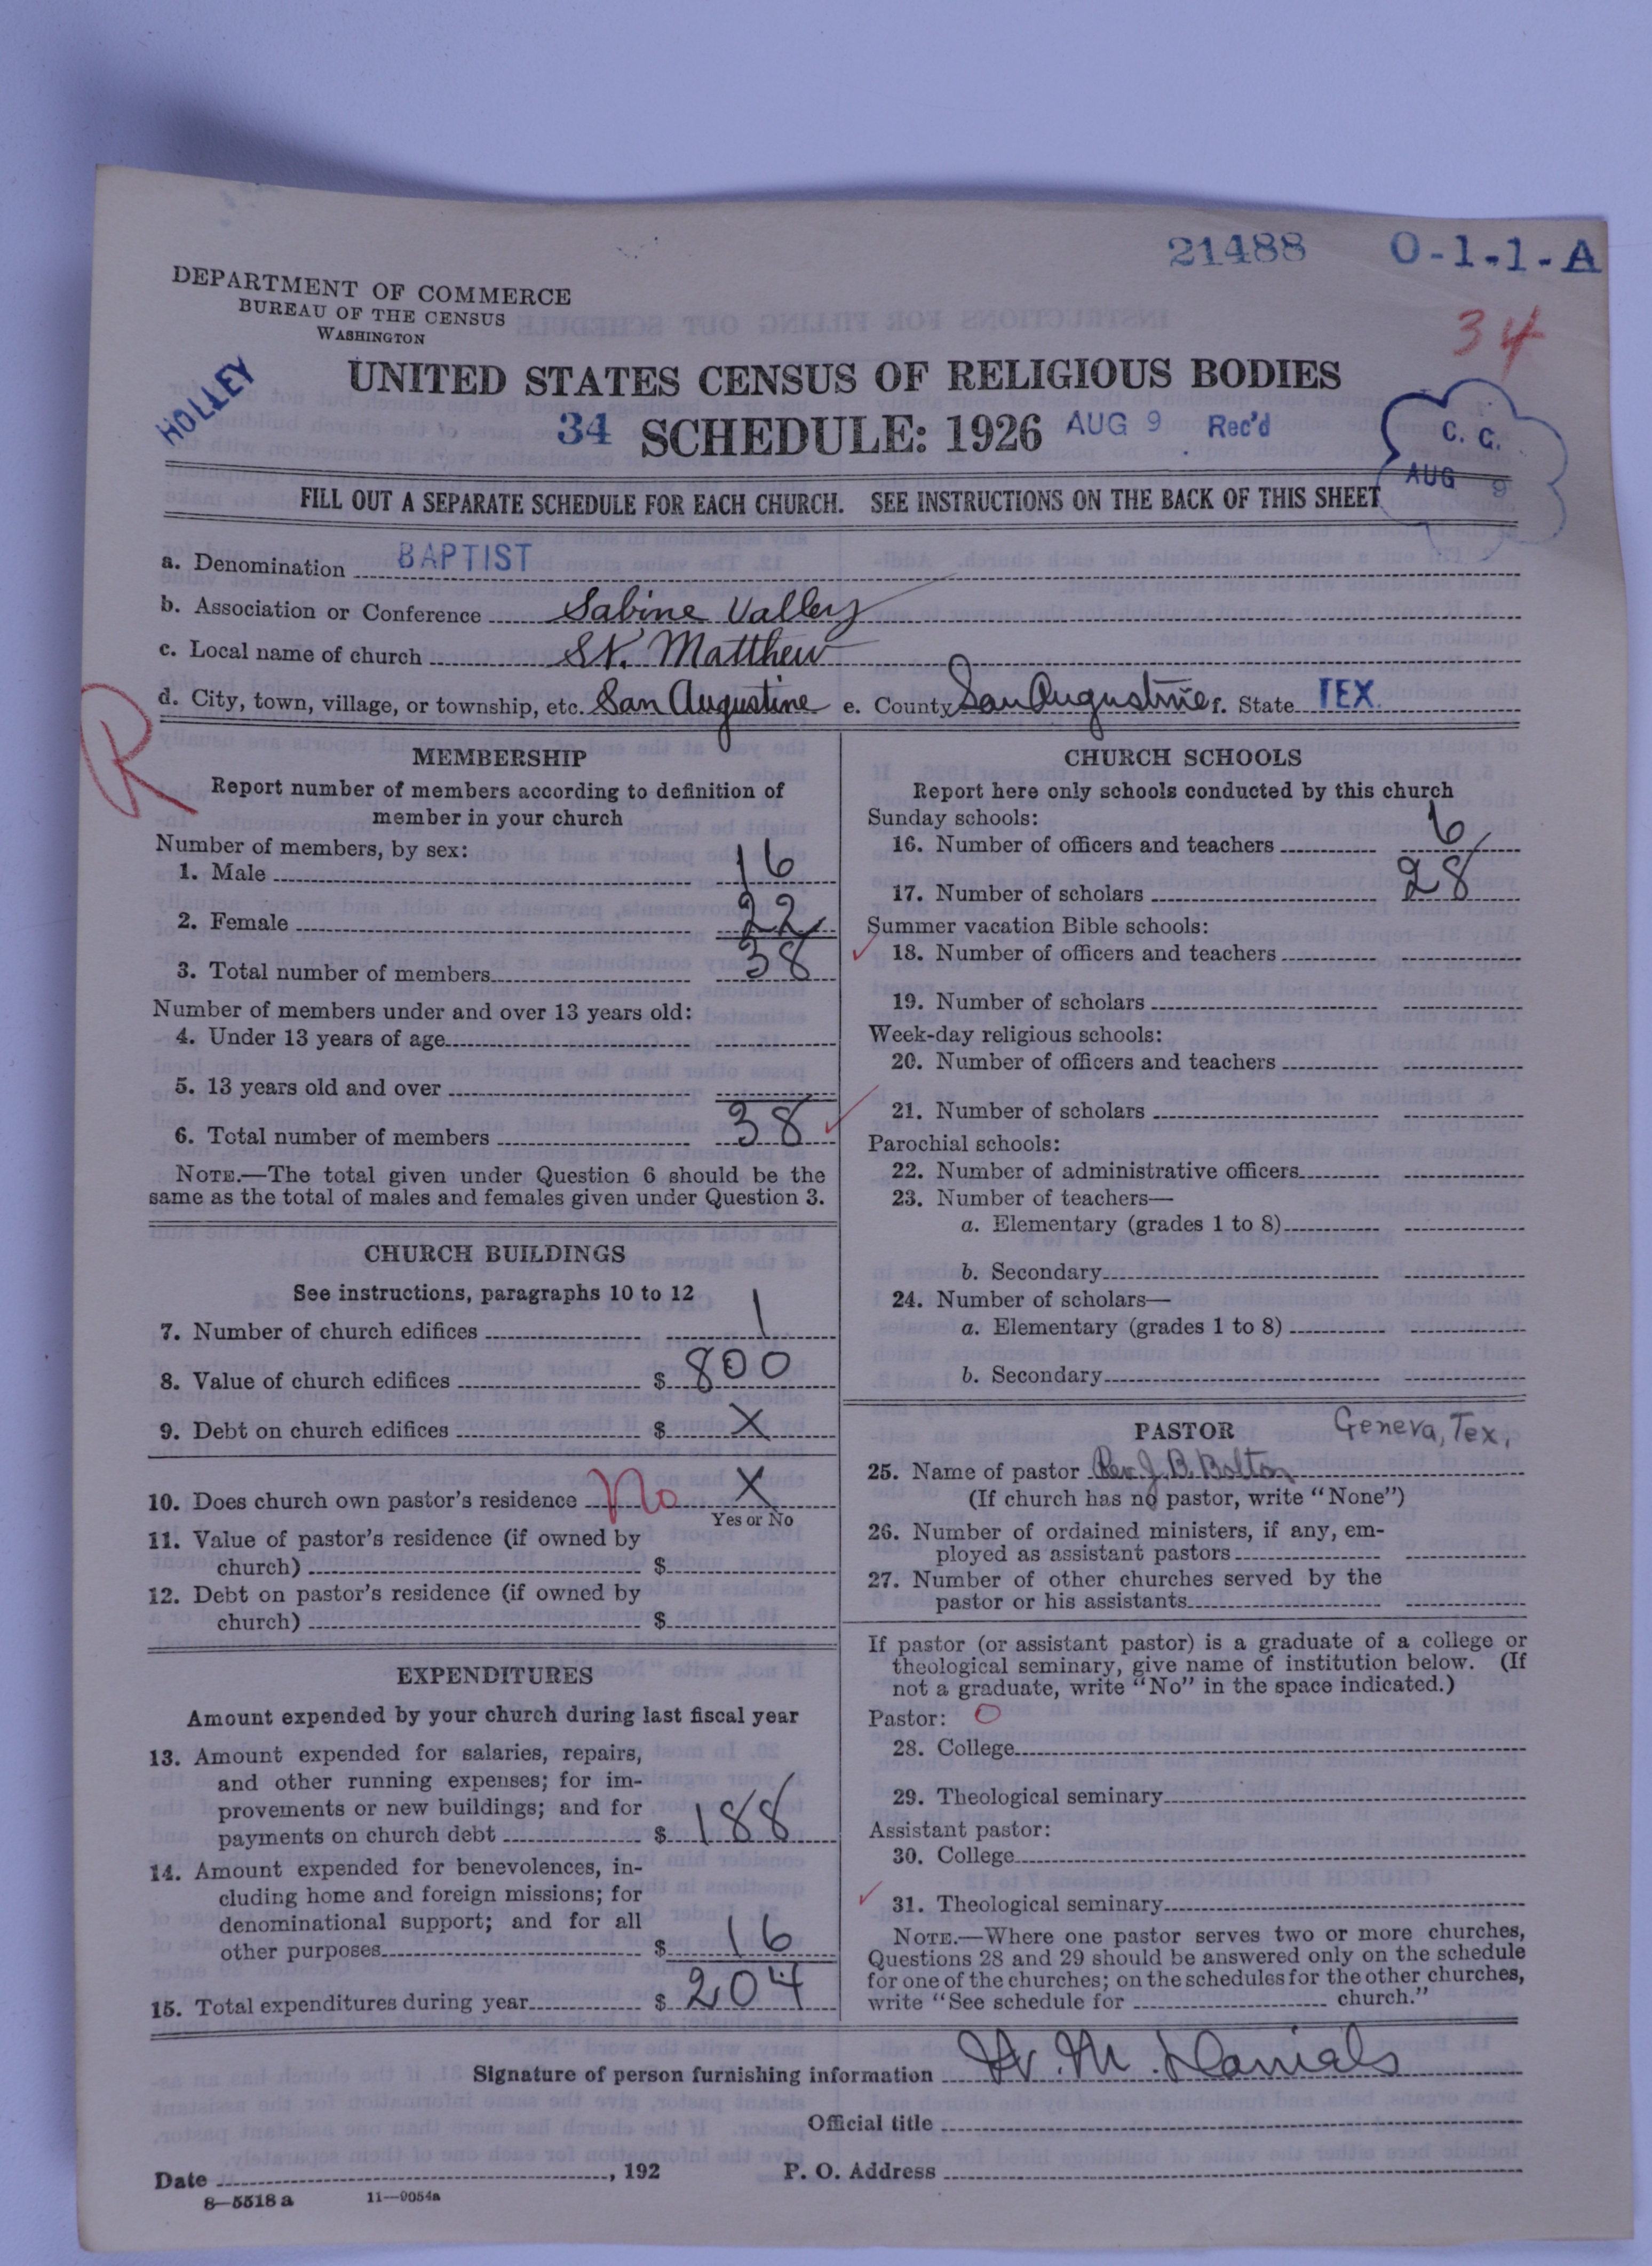 21488 O-1-1-A
34
DEPARTMENT OF COMMERCE
BUREAU OF THE CENSUS
WASHINGTON
HOLLEY
UNITED STATES CENSUS OF RELIGIOUS BODIES
34 SCHEDULE: 1926 AUG 9 Rec'd
C. C.
AUG 9
FILL OUT A SEPARATE SCHEDULE FOR EACH CHURCH. SEE INSTRUCTIONS ON THE BACK OF THIS SHEET
a. Denomination BAPTIST
b. Association or Conference Sabine Valley
c. Local name of church St. Matthew
d. City, town, village, or township, etc. San Augustine e. County San Augustine f. State TEX.
R
MEMBERSHIP
Report number of members according to definition of
member in your church
Number of members, by sex:
1. Male 16
2. Female 22
3. Total number of members 38
Number of members under and over 13 years old:
4. Under 13 years of age
5. 13 years old and over
6. Total number of members 38
NOTE.—The total given under Question 6 should be the
same as the total of males and females given under Question 3.
CHURCH BUILDINGS
See instructions, paragraphs 10 to 12
7. Number of church edifices 1
8. Value of church edifices $ 800
9. Debt on church edifices $ X
10. Does church own pastor's residence No X
Yes or No
11. Value of pastor's residence (if owned by
church) $
12. Debt on pastor's residence (if owned by
church) $
EXPENDITURES
Amount expended by your church during last fiscal year
13. Amount expended for salaries, repairs,
and other running expenses; for im-
provements or new buildings; and for
payments on church debt $ 188
14. Amount expended for benevolences, in-
cluding home and foreign missions; for
denominational support; and for all
other purposes $ 16
15. Total expenditures during year $ 204
CHURCH SCHOOLS
Report here only schools conducted by this church
Sunday schools:
16. Number of officers and teachers 6
17. Number of scholars 28
Summer vacation Bible schools:
18. Number of officers and teachers
19. Number of scholars
Week-day religious schools:
20. Number of officers and teachers
21. Number of scholars
Parochial schools:
22. Number of administrative officers
23. Number of teachers—
a. Elementary (grades 1 to 8)
b. Secondary
24. Number of scholars—
a. Elementary (grades 1 to 8)
b. Secondary
PASTOR Geneva, Tex,
25. Name of pastor Rev. J. B. Bolton
(If church has no pastor, write "None")
26. Number of ordained ministers, if any, em-
ployed as assistant pastors
27. Number of other churches served by the
pastor or his assistants
If pastor (or assistant pastor) is a graduate of a college or
theological seminary, give name of institution below. (If
not a graduate, write "No" in the space indicated.)
Pastor: O
28. College
29. Theological seminary
Assistant pastor:
30. College
31. Theological seminary
NOTE.—Where one pastor serves two or more churches,
Questions 28 and 29 should be answered only on the schedule
for one of the churches; on the schedules for the other churches,
write "See schedule for church."
Signature of person furnishing information M. Danials
Official title
Date , 192 P. O. Address
8—5518 a 11—9054a